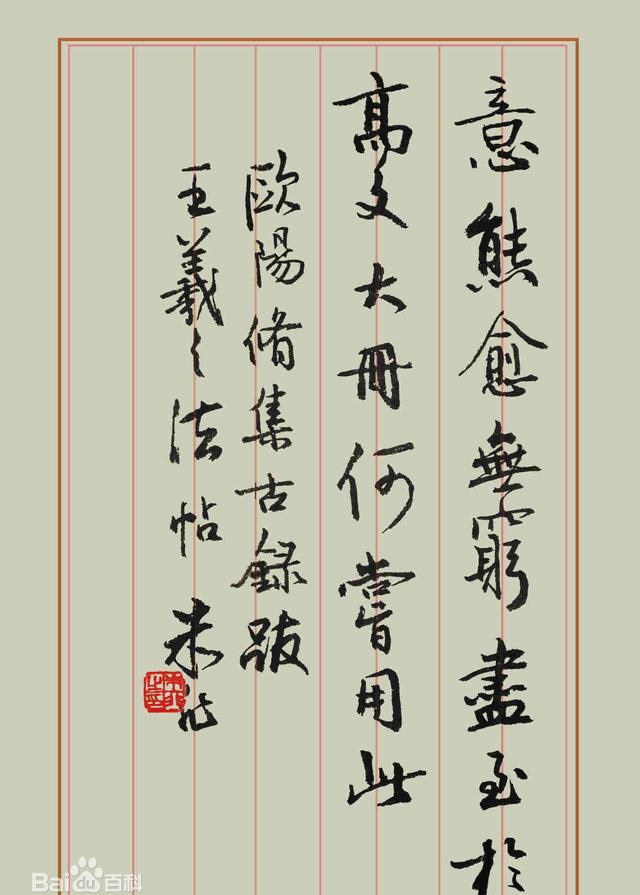 意態愈無窮盡至於
高文大冊何嘗用此
歐陽脩集古錄跋
王羲之法帖 朱
Bai百科